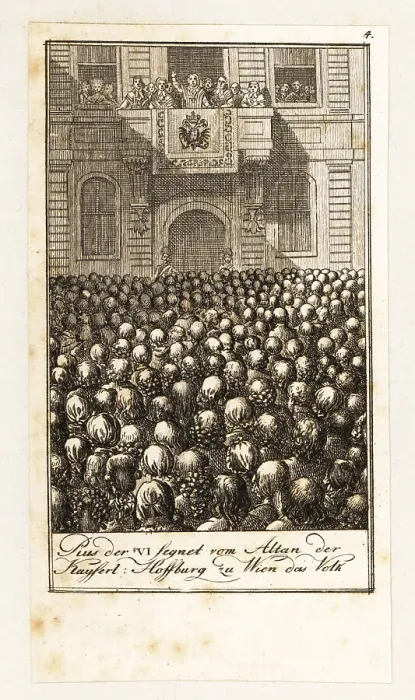 4.
Pius der VI segnet vom Altan der
Kayserl: Hoffburg zu Wien das Volk